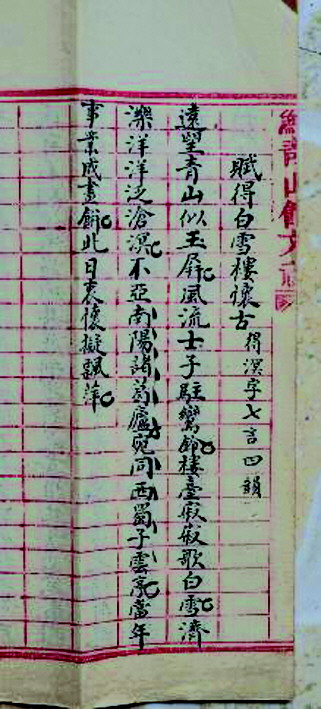 山館文
賦得白雪樓懷古得溟字七言四韻
遠望青山似玉屏風流士子駐鸞鈴樓臺寂寂歌白雪濟
濼洋洋泛滄溟不亞南陽諸葛廬宛同西蜀子雲亭當年
事業成畫餅此日衷懷擬飄萍